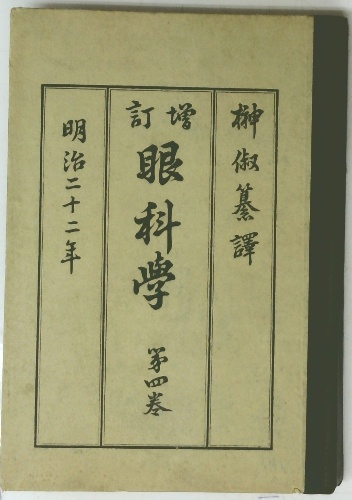 榊俶纂譯
增訂
眼科學
第四巻
明治二十二年